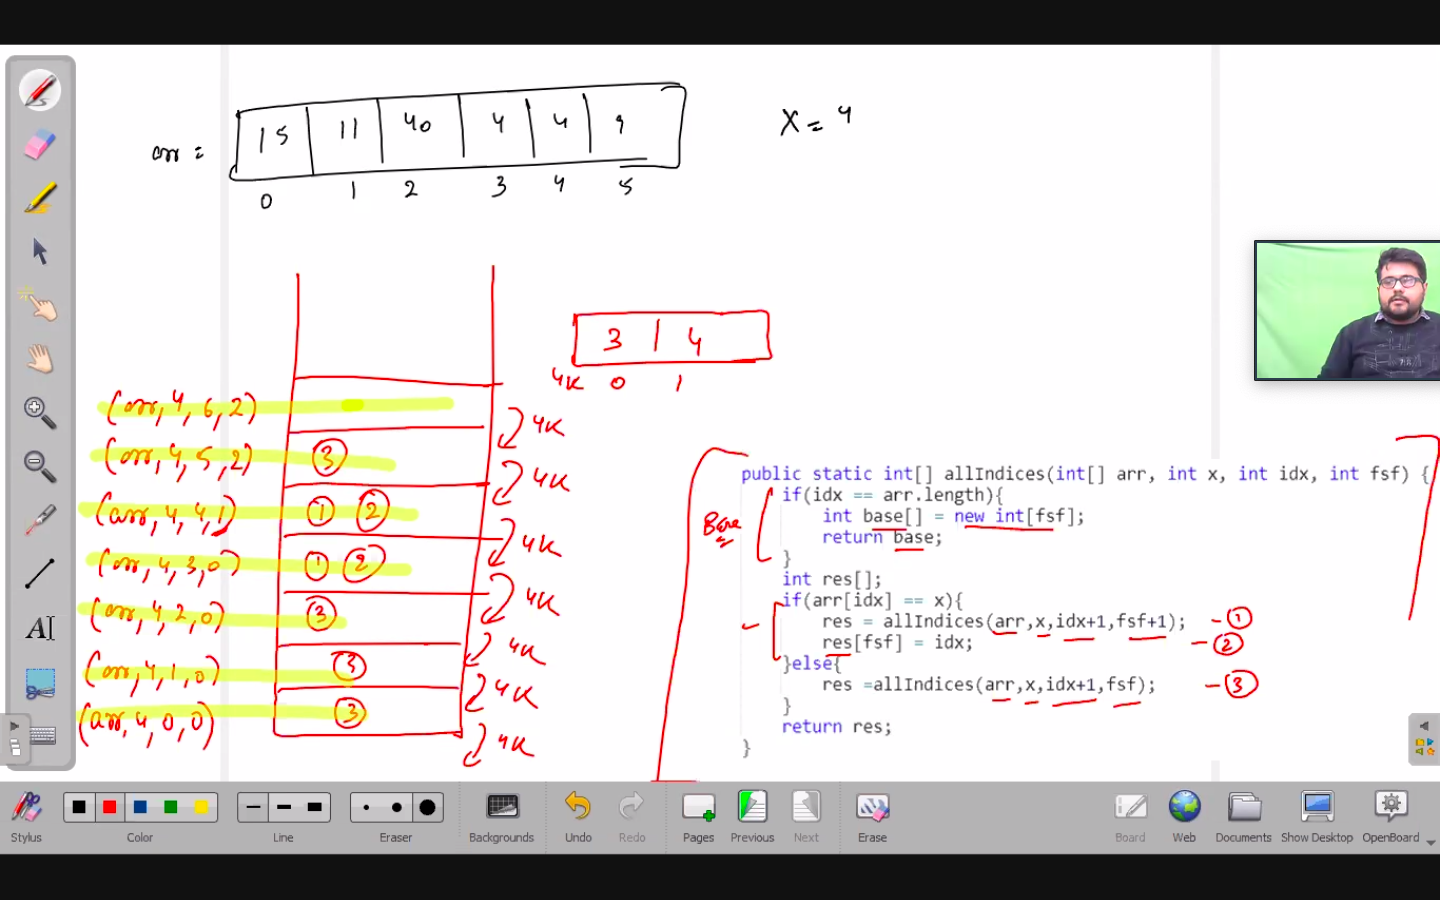 arr = 15 11 40 4 4 9
0 1 2 3 4 5
X = 4
3 4
4K 0 1
(arr, 4, 6, 2) 4K
(arr, 4, 5, 2) ③ 4K
(arr, 4, 4, 1) ① ② 4K
(arr, 4, 3, 0) ① ② 4K
(arr, 4, 2, 0) ③ 4K
(arr, 4, 1, 0) ③ 4K
(arr, 4, 0, 0) ③ 4K
public static int[] allIndices(int[] arr, int x, int idx, int fsf) {
if(idx == arr.length){
Base int base[] = new int[fsf];
return base;
}
int res[];
if(arr[idx] == x){
res = allIndices(arr,x,idx+1,fsf+1); -①
res[fsf] = idx; -②
}else{
res =allIndices(arr,x,idx+1,fsf); -③
}
return res;
}
Stylus Color Line Eraser Backgrounds Undo Redo Pages Previous Next Erase Board Web Documents Show Desktop OpenBoard